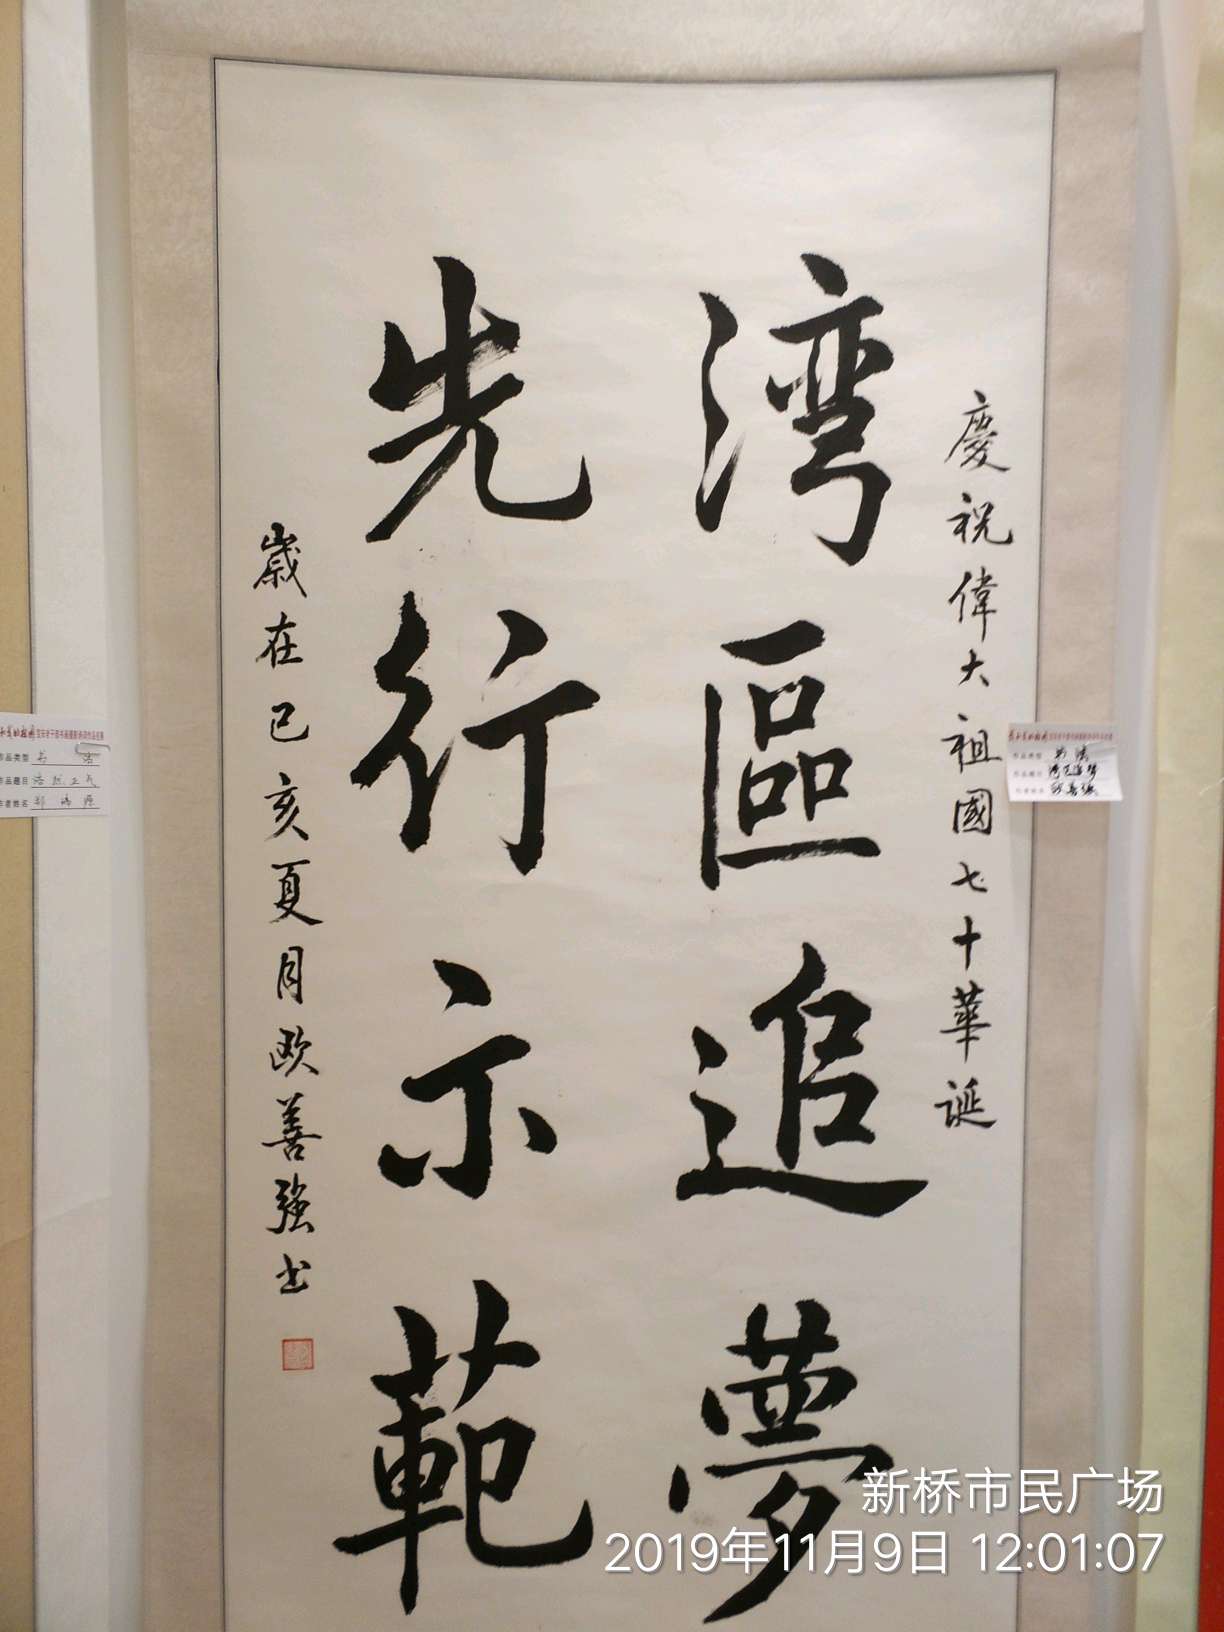 慶祝偉大祖國七十華誕
湾區追夢
先行示範
歲在己亥夏月欧善强书
作品类型 书法
作品题目 湾区追梦
作者姓名 欧善强
作品类型 书法
作品题目 浩然正气
作者姓名
新桥市民广场
2019年11月9日 12:01:07